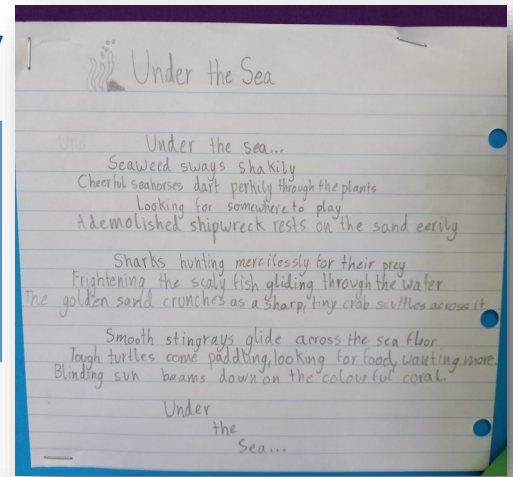 Under the Sea
Under the sea...
Seaweed sways shakily
Cheerful seahorses dart perkily through the plants
Looking for somewhere to play
A demolished shipwreck rests on the sand eerily
Sharks hunting mercilessly for their prey
Frightening the scaly fish gliding through the water
The golden sand crunches as a sharp, tiny crab scuttles across it
Smooth stingrays glide across the sea floor
Tough turtles come paddling, looking for food, wanting more.
Blinding sun beams down on the colourful coral.
Under
the
Sea...